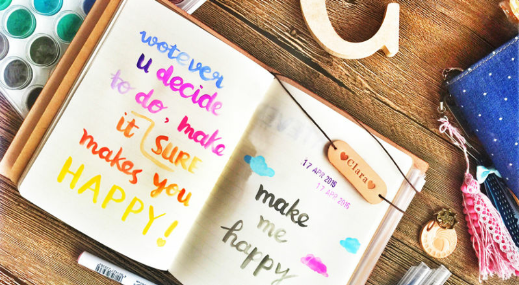 wotever
u decide
to do, make
it SURE
makes you
HAPPY!
Clara
17 APR 2015
17 APR 2015
make
me
happy